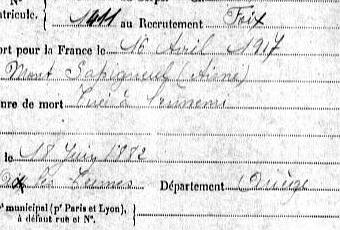 N°
atricule. 1411 au Recrutement Foix
ort pour la France le 16 Avril 1917
Mont Sapigneul (Aisne)
nre de mort Tué à l'ennemi
le 18 Juin 1882
Ax les Termes Département Ariège
t municipal (pr Paris et Lyon),
à défaut rue et N°.